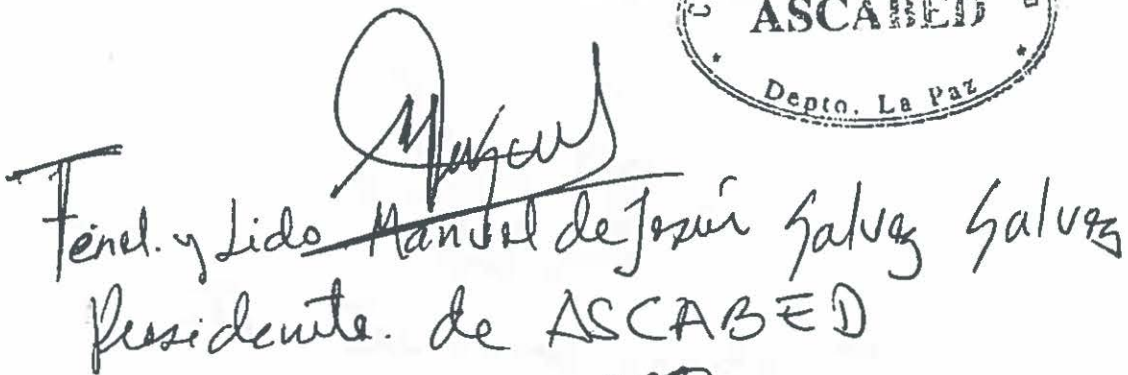 ASCABED
Depto. La Paz
Tenel. y Lido Manuel de Jesús Galvez Galvez
Presidente. de ASCABED